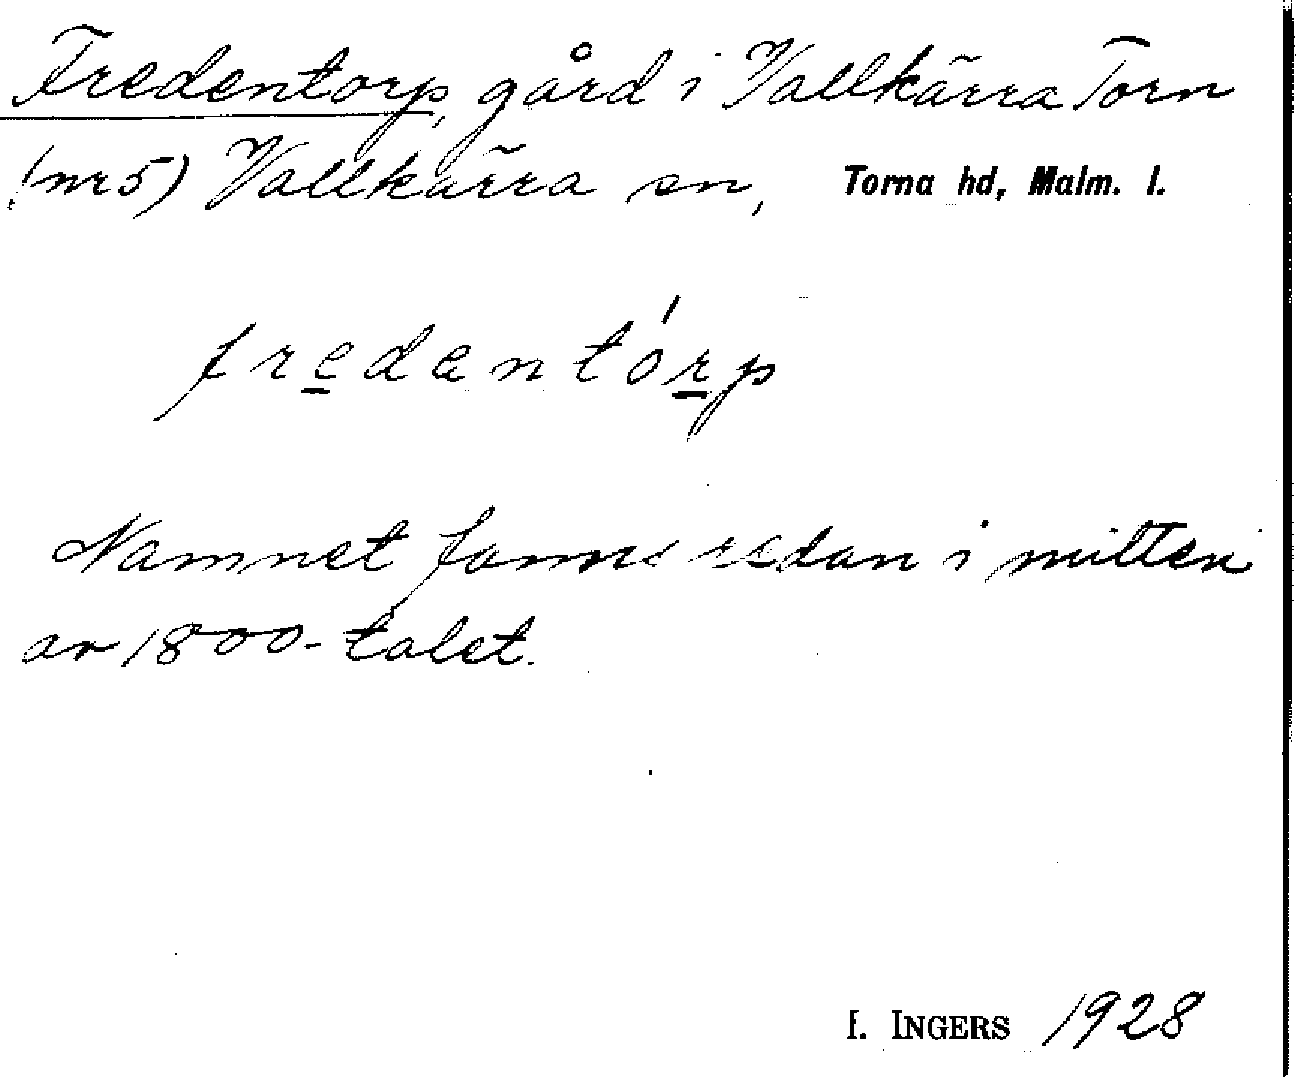 Fredentorp, gård i Vallkärra Torn
(nr 5) Vallkärra sn, Torna hd, Malm. l.
fredentórp
Namnet fanns redan i mitten
av 1800-talet.
I. INGERS 1928